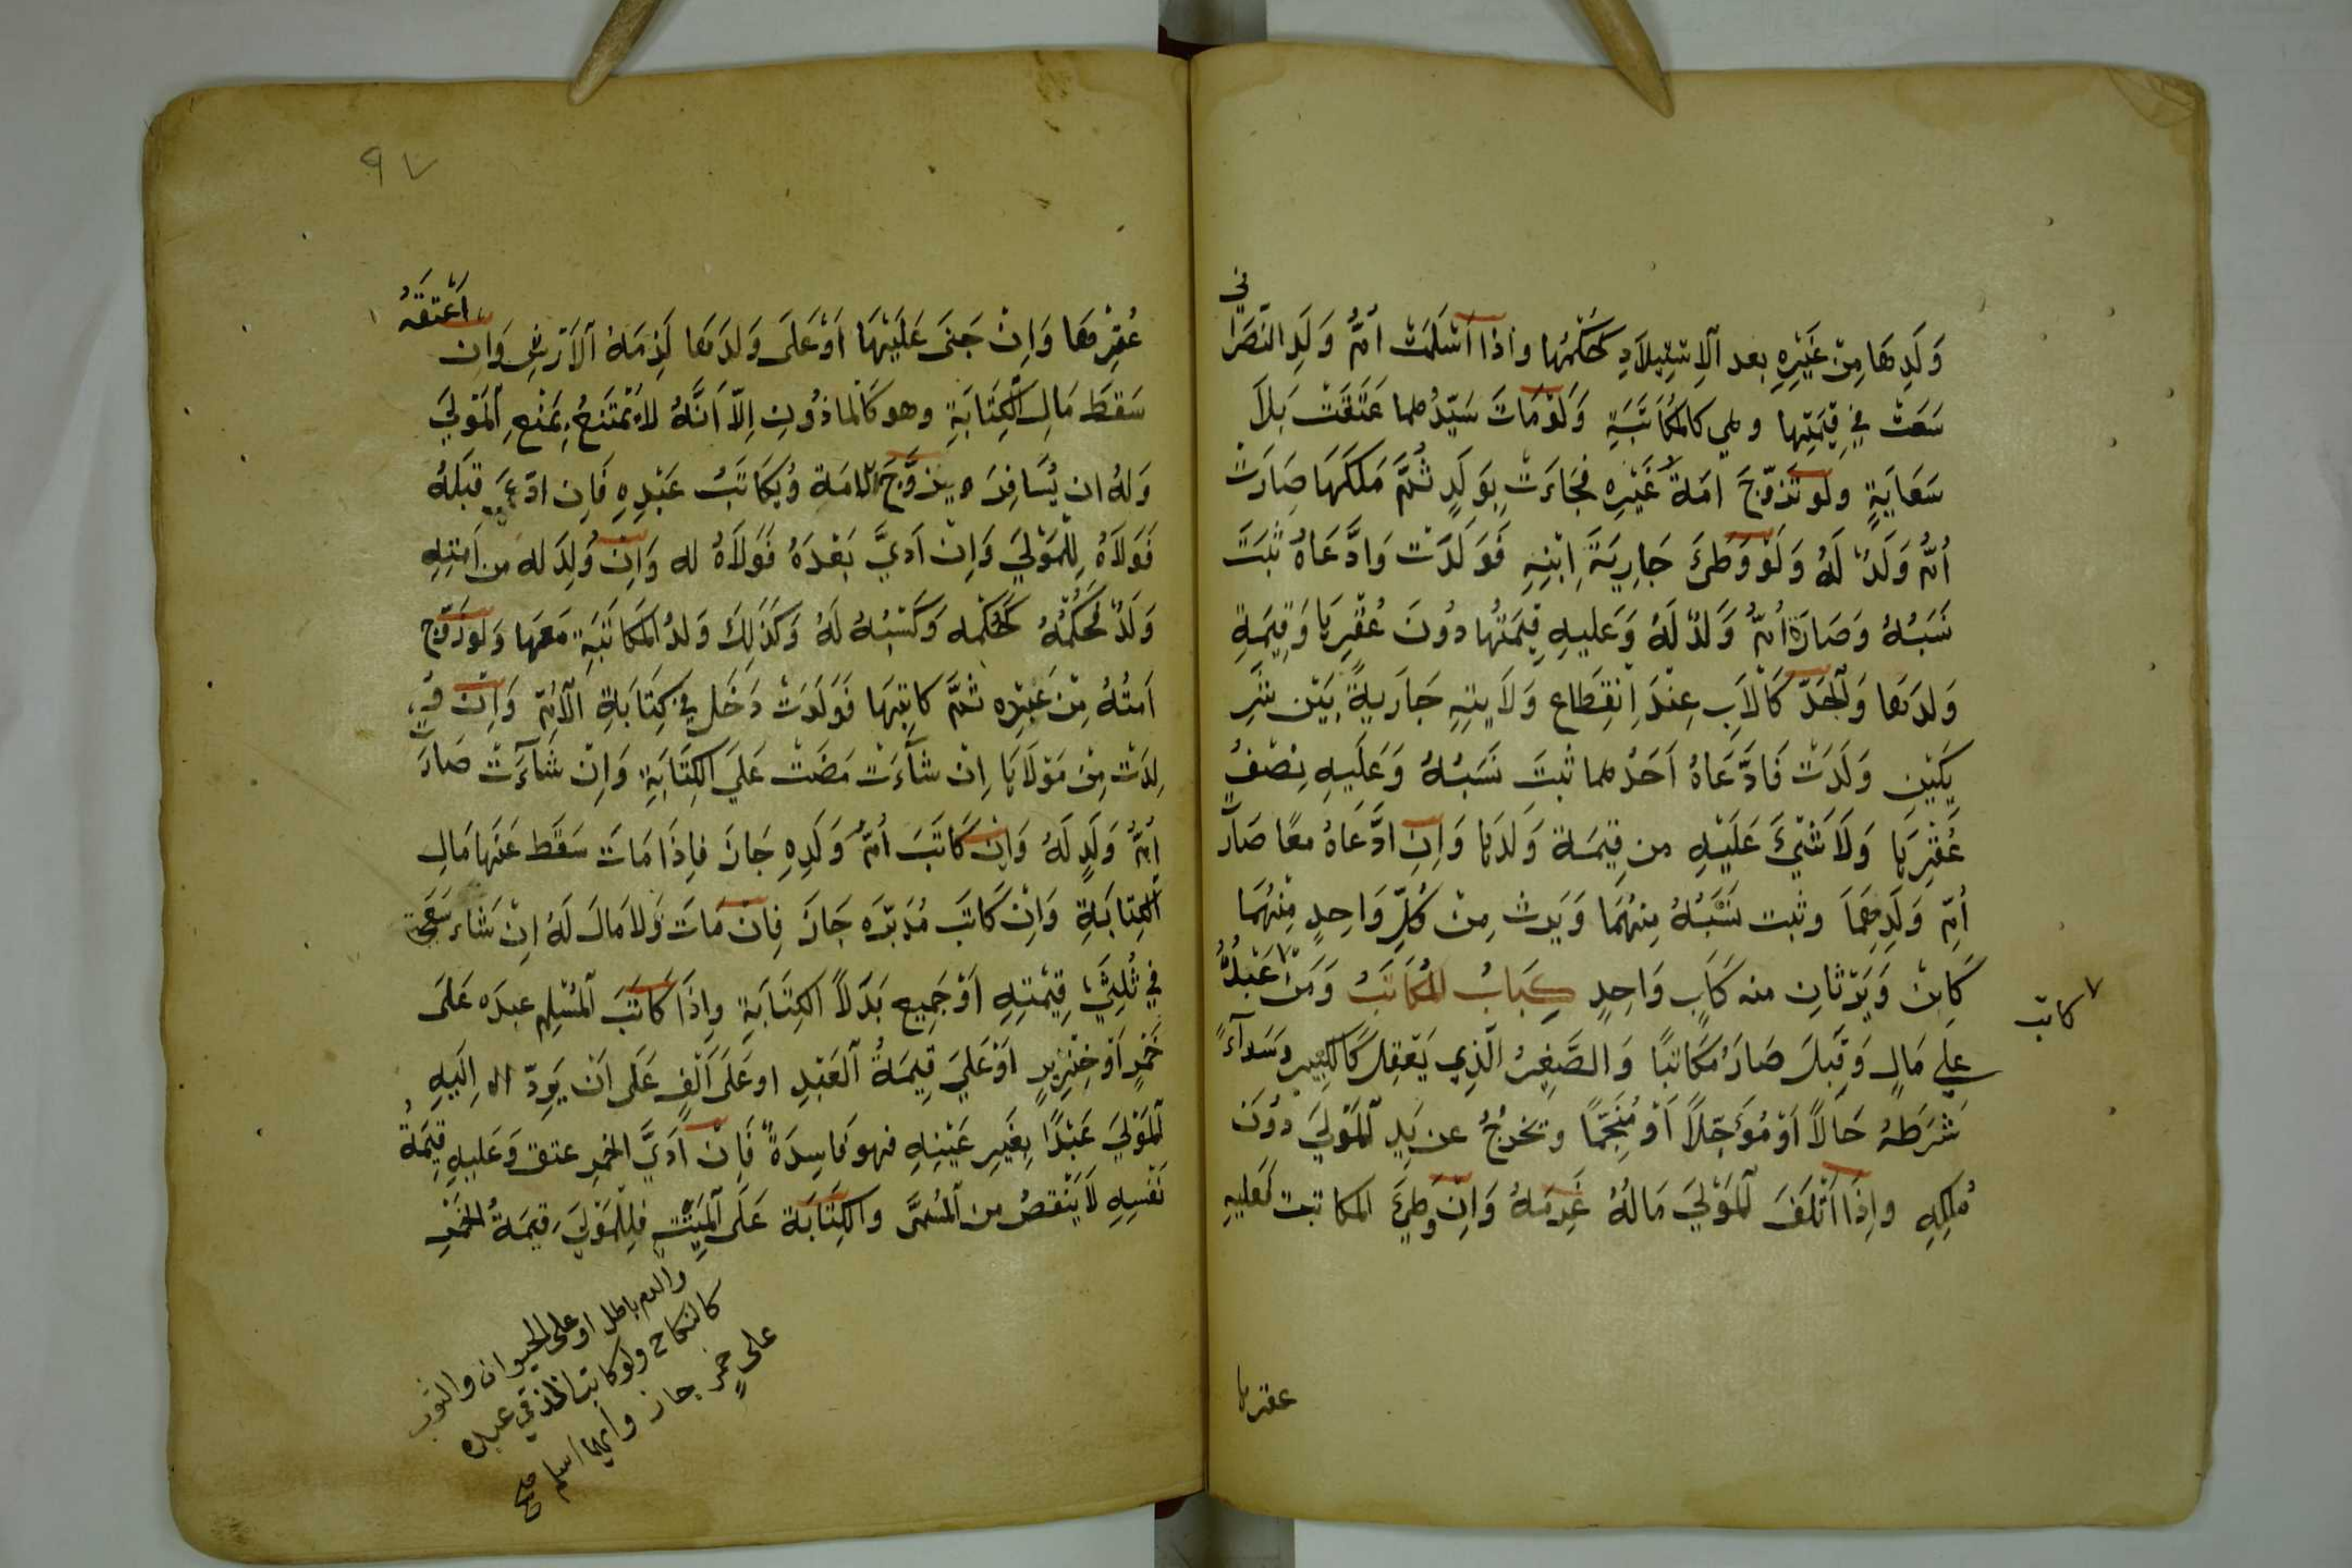 وَلَدِهَا مِنْ غَيْرِهِ بعد اَلْاِسْتِيْلَادِ كَحُكْمِهَا واذا اَسْلَمَتْ اُمُّ وَلَدِ النَصَرَانِي
سَعَتْ فِي قِيْمَتِهَا وهي كالمُكَاتَبَةِ وَلَوْمَاتَ سَيِّدُهما عَتَقَتْ بَلَا
سَعَايَةٍ ولو تَزَوَّجَ امَةَ غَيْرِهِ فَجَاءَتْ بِوَلَدٍ ثُمَّ مَلَكَهَا صَارَتْ
اُمُّ وَلَدٌ لَهُ وَلَوْ وَطِئَ جَارِيَةَ اِبْنِهِ فَوَلَدَتْ وَادَّعَاهُ ثَبَتَ
نَسَبُهُ وَصَارَة اُمُّ وَلَدٌ لَهُ وَعَليهِ قِيْمَتُها دُونَ عُقْرِهَا وَقِيْمَةِ
وَلدَهَا وَاَلْجَدّ كَالْاَبِ عِنْدَ اِنْقِطَاعِ وَلَايتِهِ جَارِيةً بَيْنَ شَرِ
يكَيْنِ وَلَدَتْ فَادَّعَاهُ اَحَدُهما ثبتَ نَسَبُهُ وَعَلَيهِ نِصْفُ
عُقْرِهَا وَلَا شَيْءَ عَلَيْهِ من قِيمَة وَلدَهَا وَاِنِ ادَّعَاهُ معًا صَارَت
اُمِّ وَلَدِهِمَا وثبت نَسَبُهُ مِنهُمَا وَيَرث مِنْ كُلِّ وَاحِدٍ مِنْهُمَا
كَابنْ وَيَرَثانِ منه كَابٍ وَاحِدٍ كِتَابُ المُكَاتَبُ وَمَنْ عَبْدُهُ
كاتب
على مَالٍ وَقَبِلَ صَارَ مُكَاتبًا وَالصَّغِيرُ الَّذِي يَعْقِلُ كَالكَبِيرِ وَسَوَآءً
شَرَطَهُ حَالًا اَوْ مُؤَجّلًا اَوْ مُنَجَّمًا وتخرجُ عن يَدِ اَلْمَوْلَيَ دُوُنَ
مُلكِهِ واِذَا اَتْلَفَ اَلْمَوْلَيَ مَالهُ غَرِمَهُ وَاِنْ وَطِئَ المكاتبت فَعليهِ
عقرها
٩٧
عُقِرْهَا وَاِنْ جَنَى عَلَيْهَا اَوْ عَلَى وَلدَهَا لَزِمَهُ اَلْاَرْشِ وَاِن اَعْتَقَهُ
سَقطَ مَالِ الكِتَابَةِ وهو كَالماذُونِ اِلّا اَنَّهُ لَا يَمْتَنعُ بِمَنْعِ اَلْمَوْلَيَ
وَلهُ ان يُسَافِرَ ويزوَّجَ الامَة وَيكَاتَبُ عَبْدِهِ فَاِن ادّىَ قبَلهُ
فَوَلَاهُ لِلْمَوْلَيَ وَاِنْ اَديَّ بَعْدَهُ فَوَلَاهُ له وَاِنْ وُلِدَ له من اَمتِهِ
وَلَدٌ فَحُكمُهُ كَحُكْمِه وَكَسْبُهُ لَهُ وَكَذَلِكَ وَلدُ المكَاتَبَةِ مَعَهَا وَلَو زَوّج
اَمتُهُ مِنْ عَبْدِه ثمَّ كاتبَهَا فَوَلَدَتْ دَخَل فِي كِتَابَةِ اَلْاُمِّ وَاِنْ وَ
لِدَتْ مِنْ مَوْلَاهَا اِنْ شَآءَتْ مَضَتْ عَلَيَ الكِتَابَةِ وَاِنْ شَآءَتْ صَارَت
اُمُّ وَلَدٍ لَهُ وَاِنْ كَاتَبَ اُمّ وَلَدِهِ جَازَ فاِذَا مَاتَ سَقَط عَنَها مَالِ
اَلكِتَابَةِ وَاِنْ كَاتَبَ مُدَبّرَه جَازَ فِاِنْ مَاتَ وَلا مَالَ لَهُ اِنْ شَاء سَعَى
فِي ثُلثَيْ قِيْمَتِهِ اَوْ جَمِيعِ بَدَلاً الكِتَابَةِ واِذَا كَاتَبَ اَلْمُسْلِمِ عبدَه عَلَى
خَمْرٍ اَوْ خِنْزِيرٍ اَوْ عَلَيَ قِيمَةُ اَلْعَبْدِ او عَلَى اَلْفٍ عَلَى اَنْ يَرِدّ اِلَيهِ
اَلْمَوْلَيَ عَبْدًا بِغَيرِ عَيْنِهِ فهو فَاسِدَةً فَاِنْ اَدَيَّ الخمر عتق وَعَليهِ قِيْمَةُ
نَفْسِهِ لَا يَنْقصُ من اَلْمُسَمَّى والكِتَابَة عَلَى اَلْمَيتَةِ فلِلْمَوْلَيَ قِيمَةُ الخَمْرِ
والدم باطل او على الحيوان والثوب
كالنكاح ولو كاتب الذمي عبده
على خمرٍ جاز وايهما اسلم